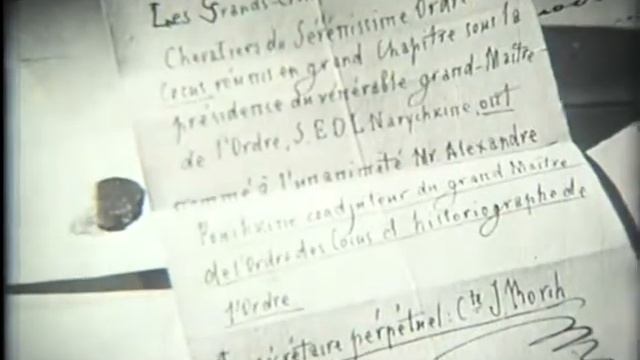 Les Grands-
Chevaliers du Sérénissime Ordre
Cocus réunis en grand Chapitre sous la
présidence du vénérable grand-Maître
de l'Ordre, S.E.D.L Narychkine, ont
nommé à l'unanimité Mr. Alexandre
Pouchkine coadjuteur du grand Maître
de l'Ordre des Cocus et historiographe de
l'Ordre
secrétaire perpétuel: Cte J Borch